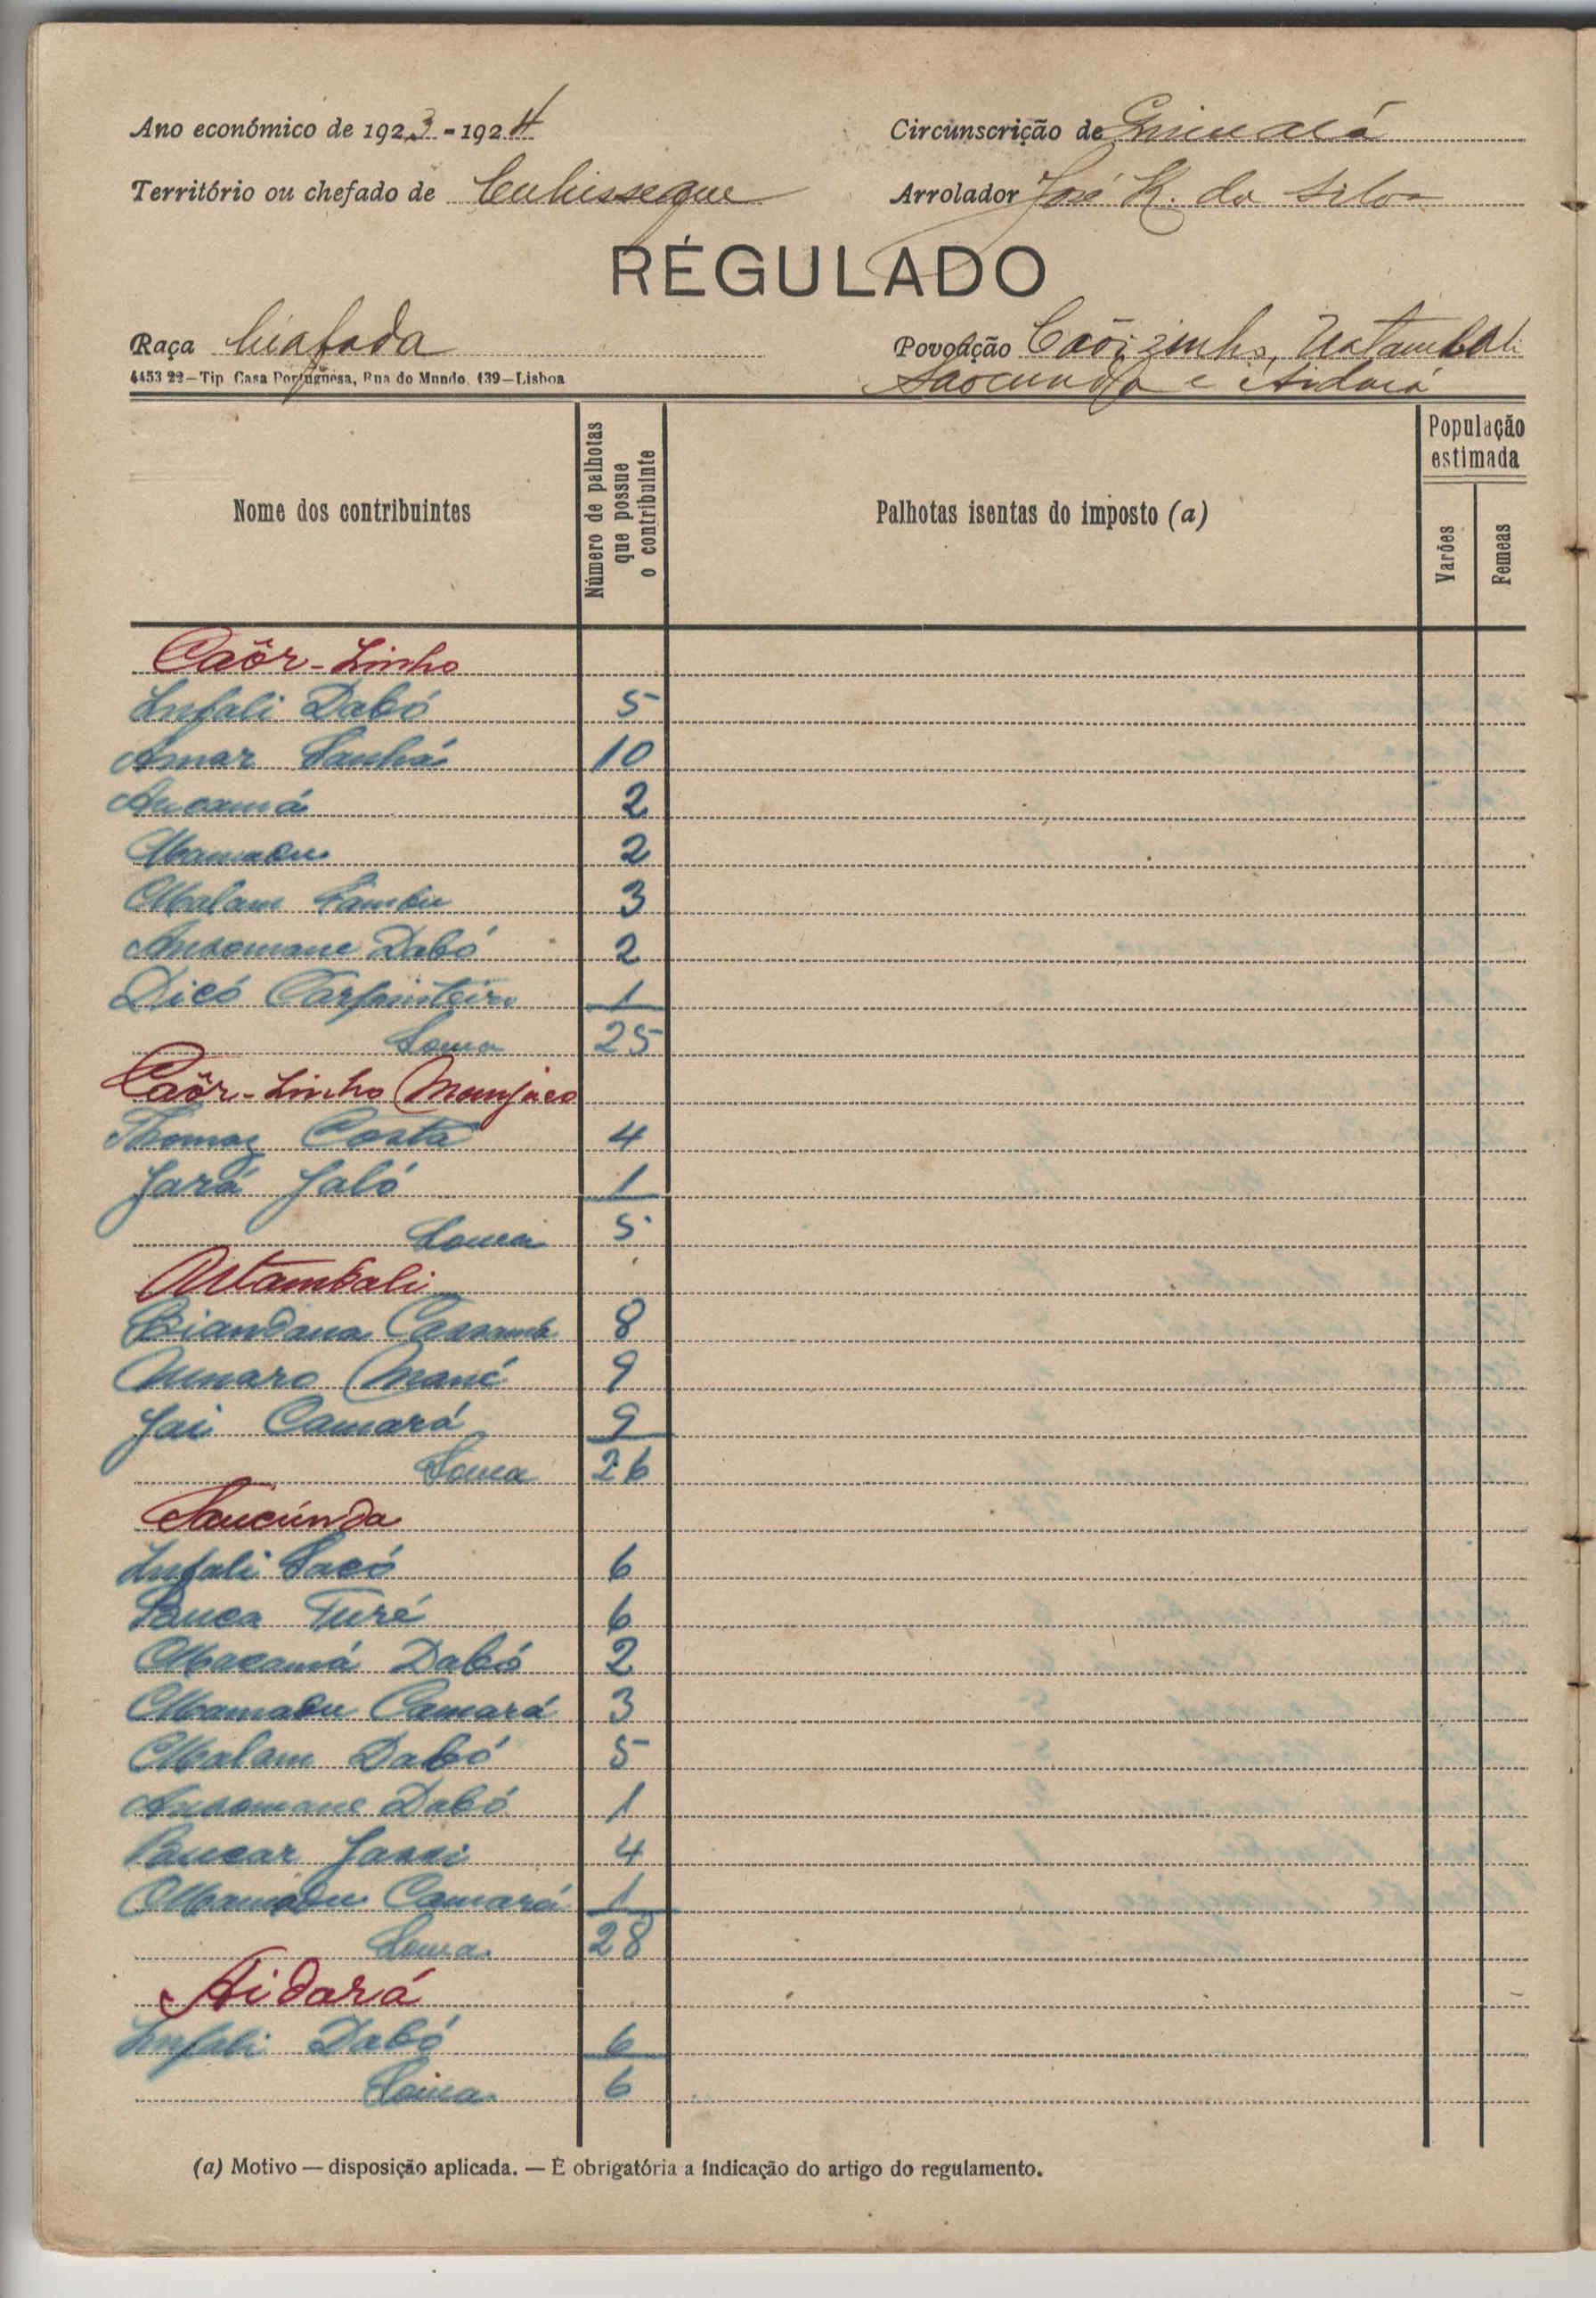 Ano económico de 1923-1924
Circunscrição de
Território ou chefado de Cubisseque
Arrolador José R. da Silva
RÉGULADO
Raça Biafada
Povoação Caôrzinho, Untambali
Saocunda e Aidará
4453 22—Tip. Casa Portuguesa, Rua do Mundo, 139—Lisboa
Nome dos contribuintes
Número de palhotas que possue o contribuinte
Palhotas isentas do imposto (a)
População estimada
Varões
Femeas
Caôr-Zinho
Infali Dabó 5
Amar Sanhá 10
Ancamá 2
Mamadu 2
Malam Sambu 3
Ansomane Dabó 2
Dicó Carpinteiro 1
Soma 25
Caôr-Zinho Manjaco
Thomaz Costa 4
Jará Jaló 1
Soma 5
Untambali
Biandana Cassamá 8
Umaro Mané 9
Jai Camará 9
Soma 26
Saucúnda
Infali Sacó 6
Turé 6
Macamá Dabó 2
Mamadu Camará 3
Malam Dabó 5
Ansomane Dabó 1
Bucar Jassi 4
Mamadu Camará 1
Soma 28
Aidará
Infali Dabó 6
Soma 6
(a) Motivo — disposição aplicada. — É obrigatória a indicação do artigo do regulamento.